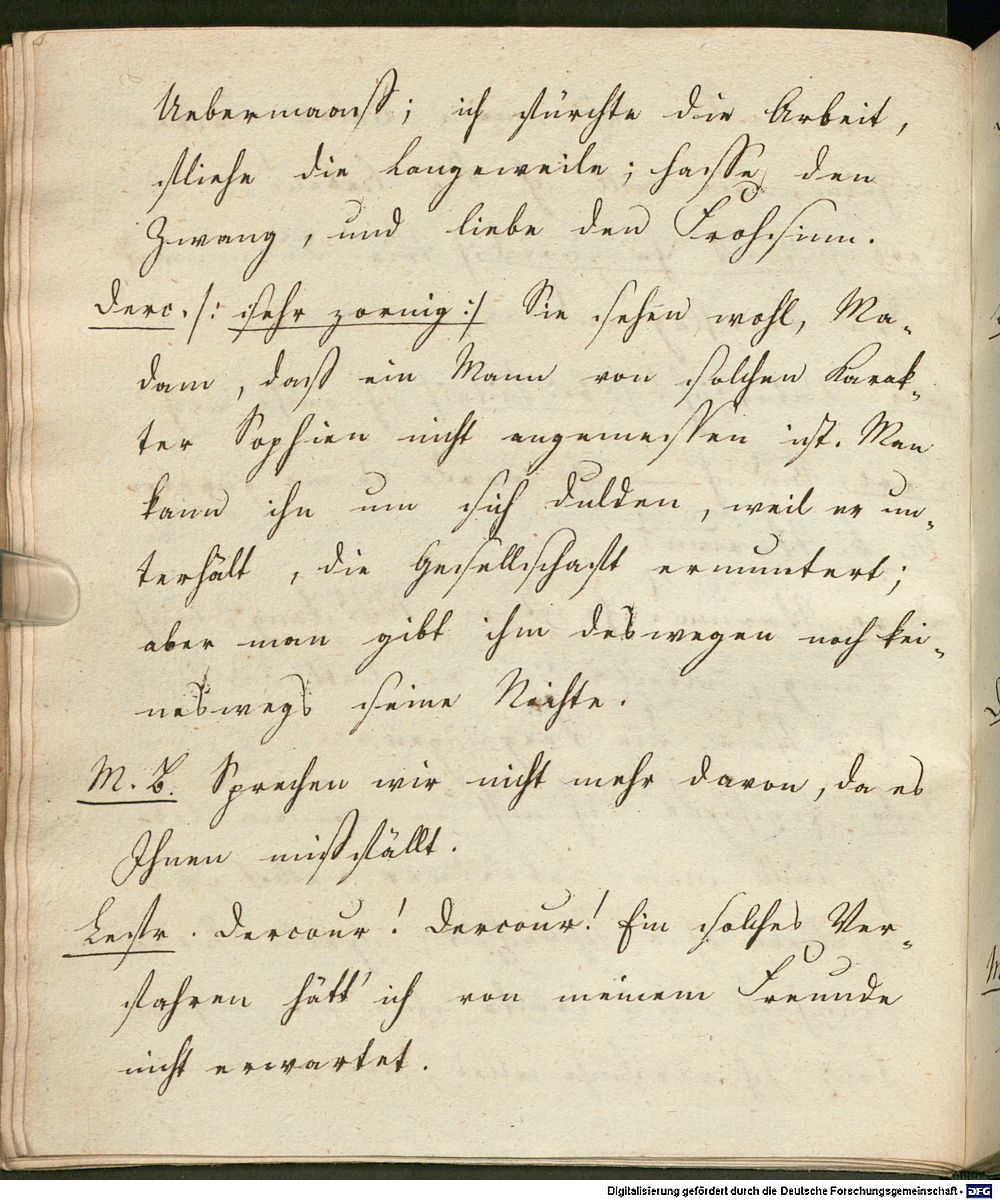 Uebermaaß; ich fürchte die Arbeit,
fliehe die Langeweile; hasse den
Zwang, und liebe den Frohsinn.
Derc. /: sehr zornig :/ Sie sehen wohl, Ma-
dam, daß ein Mann von solchen Karak-
ter Sophien nicht angemessen ist. Man
kann ihn um sich dulden, weil er un-
terhält, die Gesellschaft ermuntert;
aber man gibt ihm deswegen noch kei-
neswegs seine Nichte.
M. B. Sprechen wir nicht mehr davon, da es
Ihnen mißfällt.
Lestr. Dercour! Dercour! Ein solches Ver-
fahren hätt' ich von meinem Freunde
nicht erwartet.
Digitalisierung gefördert durch die Deutsche Forschungsgemeinschaft - DFG